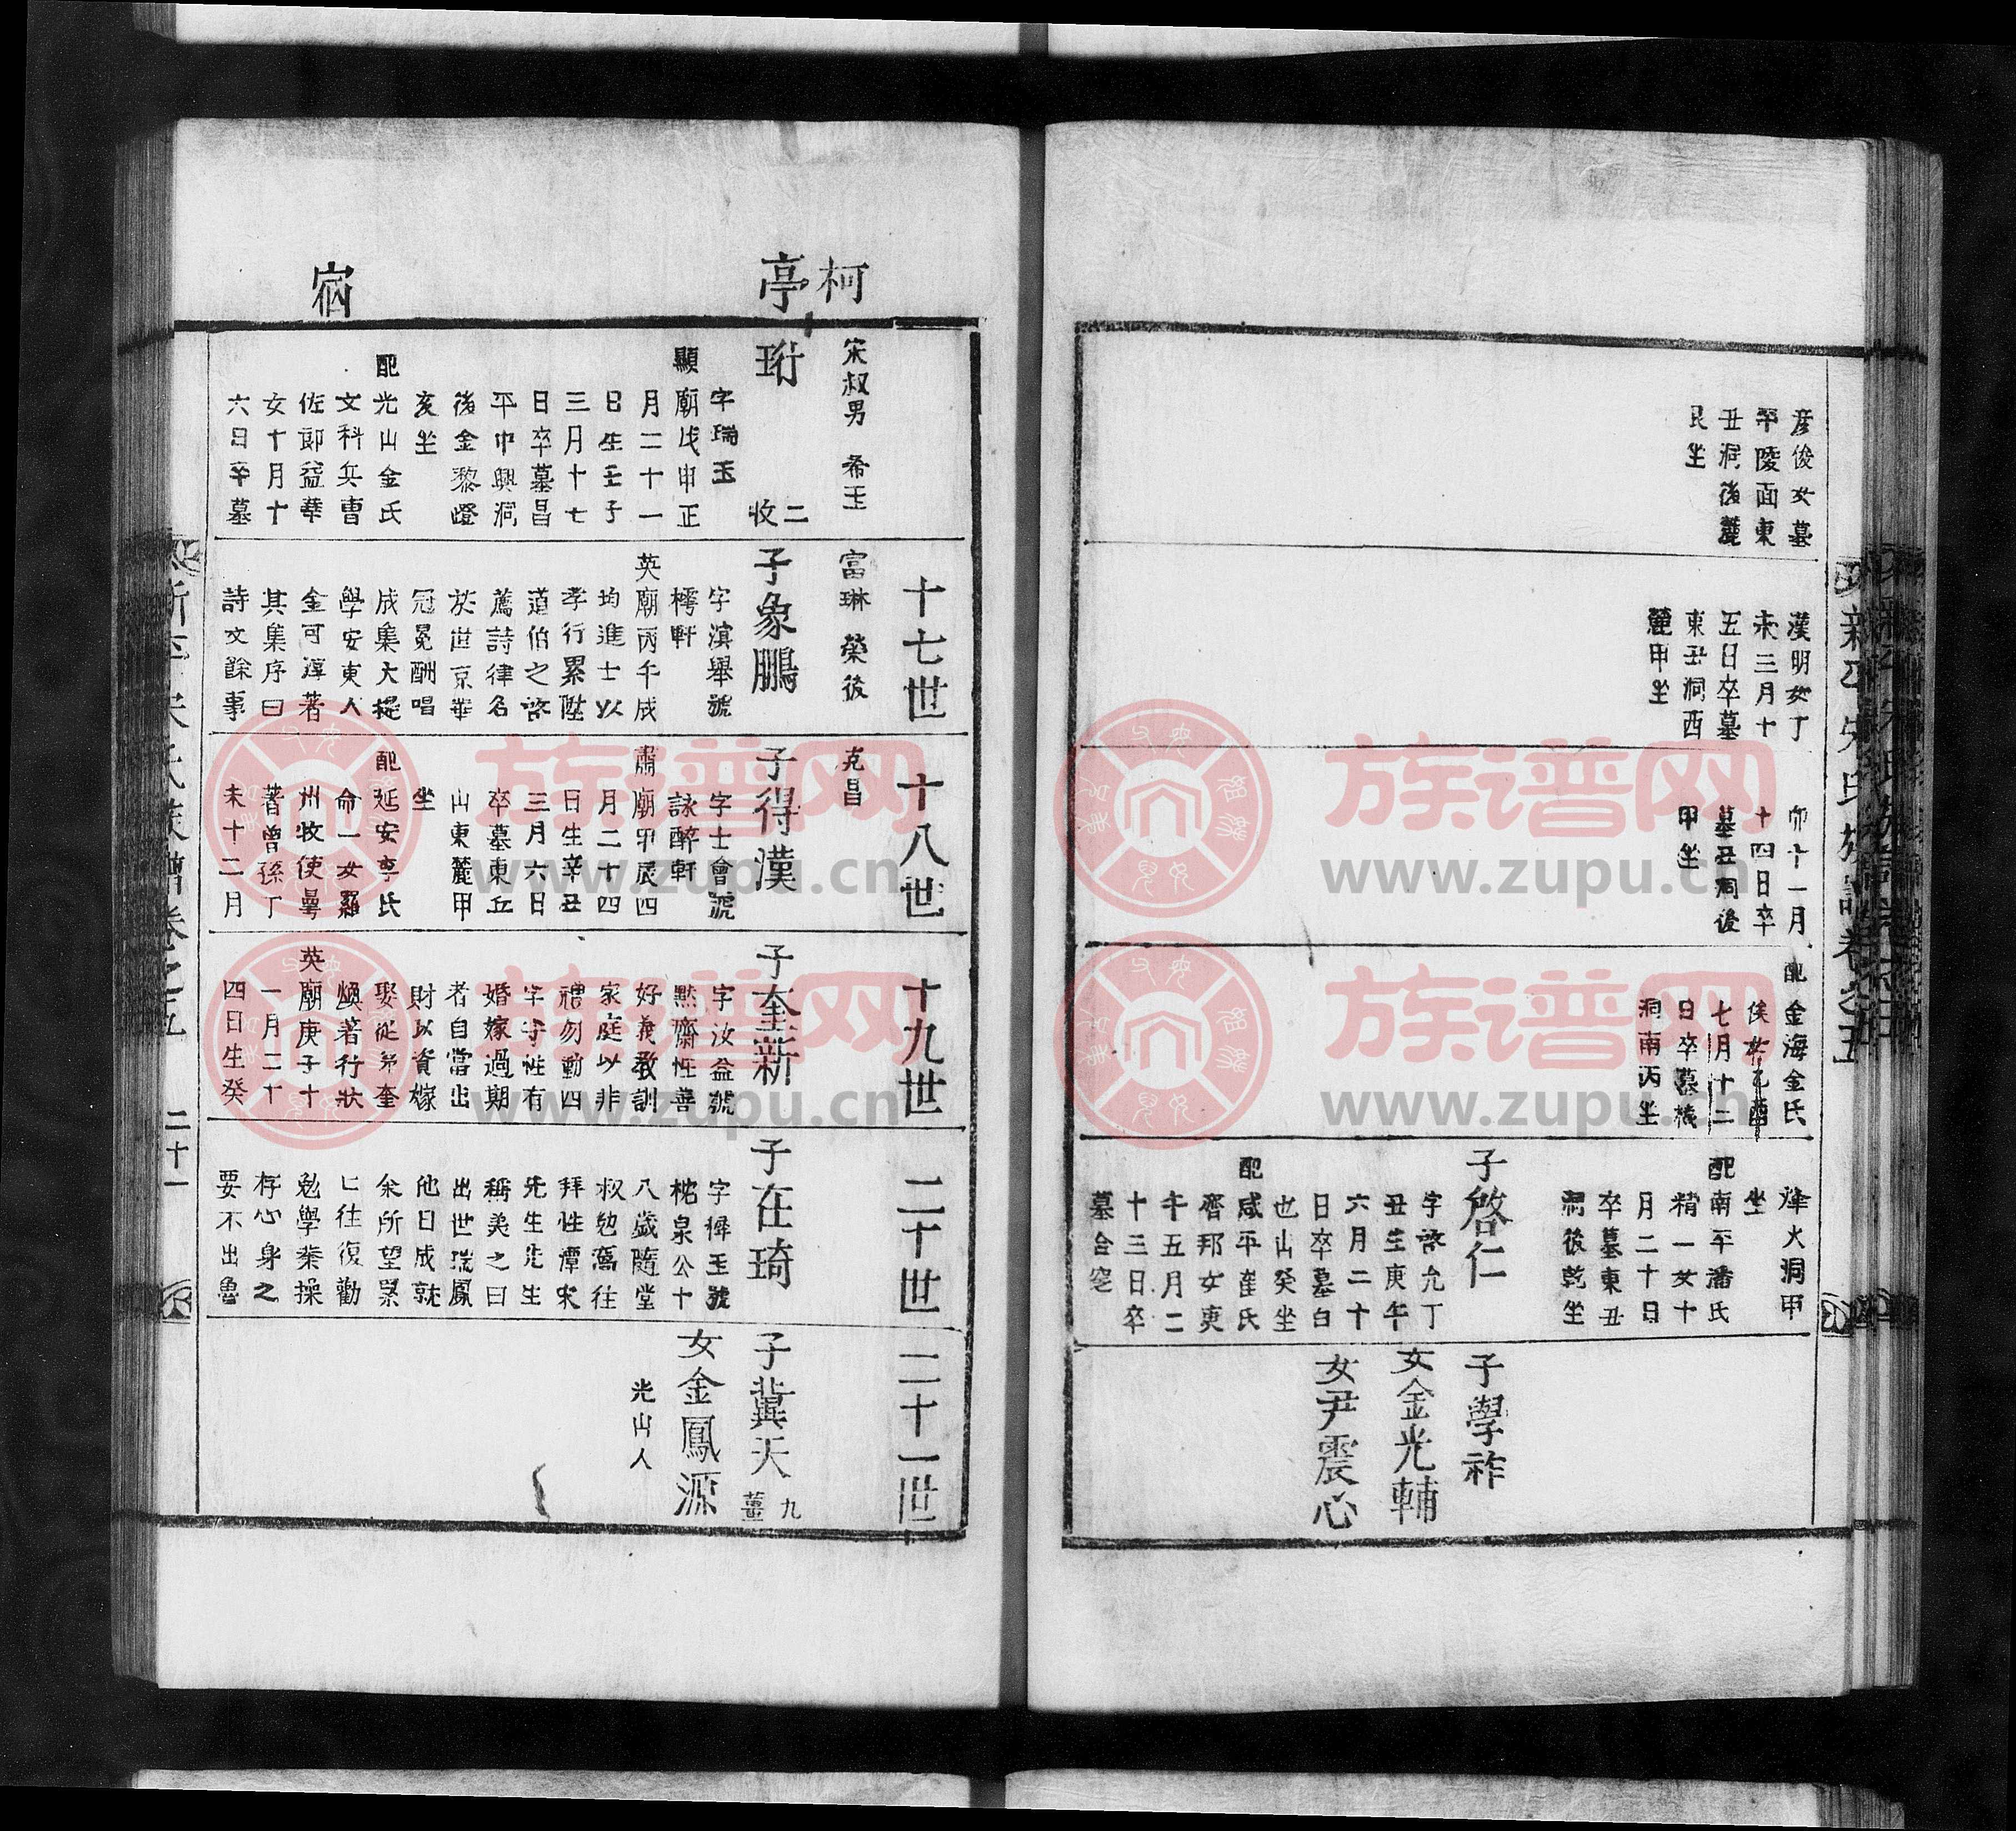 彦俊女墓
平陵面東
丑洞後麓
艮坐
漢明女丁
未三月十
五日卒墓
東丑洞西
麓甲坐
卯十一月
十四日卒
墓丑洞後
甲坐
配金海金氏
俟女乙酉
七月十二
日卒墓棧
洞南丙坐
烽火洞甲
坐
配南平潘氏
精一女十
月二十日
卒墓東丑
洞後乾坐
子啓仁
字啓允丁
丑生庚午
六月二十
日卒墓白
也山癸坐
配咸平崔氏
齊邦女庚
午五月二
十三日卒
墓合窆
子學祚
女金光輔
女尹震心
柯
亭
宿
宋叔男 希玉
珩
二
收
字瑞玉
顯廟戊申正
月二十一
日生壬子
三月十七
日卒墓昌
平中興洞
後金黎嶝
亥坐
配光山金氏
文科兵曹
佐郎益華
女十月十
六日卒墓
十七世
富琳 榮後
子象鵬
字濱舉號
樗軒
英廟丙午成
均進士以
孝行累陞
道伯之啓
薦詩律名
於世京華
冠冕酬唱
成集大提
學安東人
金可淳著
其集序曰
詩文餘事
十八世
克昌
子得漢
字士會號
詠醉軒
肅廟甲辰四
月二十四
日生辛丑
三月六日
卒墓東丘
山東麓甲
坐
配延安李氏
命一女羅
州牧使晷
著曾孫丁
未十二月
十九世
子奎新
字汝益號
默齋性善
好義教訓
家庭以非
禮勿動四
字守性有
婚嫁過期
者自當出
財以資嫁
娶從弟奎
煥著行狀
英廟庚子十
一月二十
四日生癸
二十世
子在琦
字禕玉號
枕泉公十
八歲隨堂
叔勉窩往
拜性潭宋
先生先生
稱美之曰
出世瑞鳳
他日成就
余所望累
匕往復勸
勉學業操
存心身之
要不出魯
二十一世
子冀天
九
薑
女金鳳源
光山人
二十一
族谱网
www.zupu.cn
族谱网
www.zupu.cn
族谱网
www.zupu.cn
族谱网
www.zupu.cn